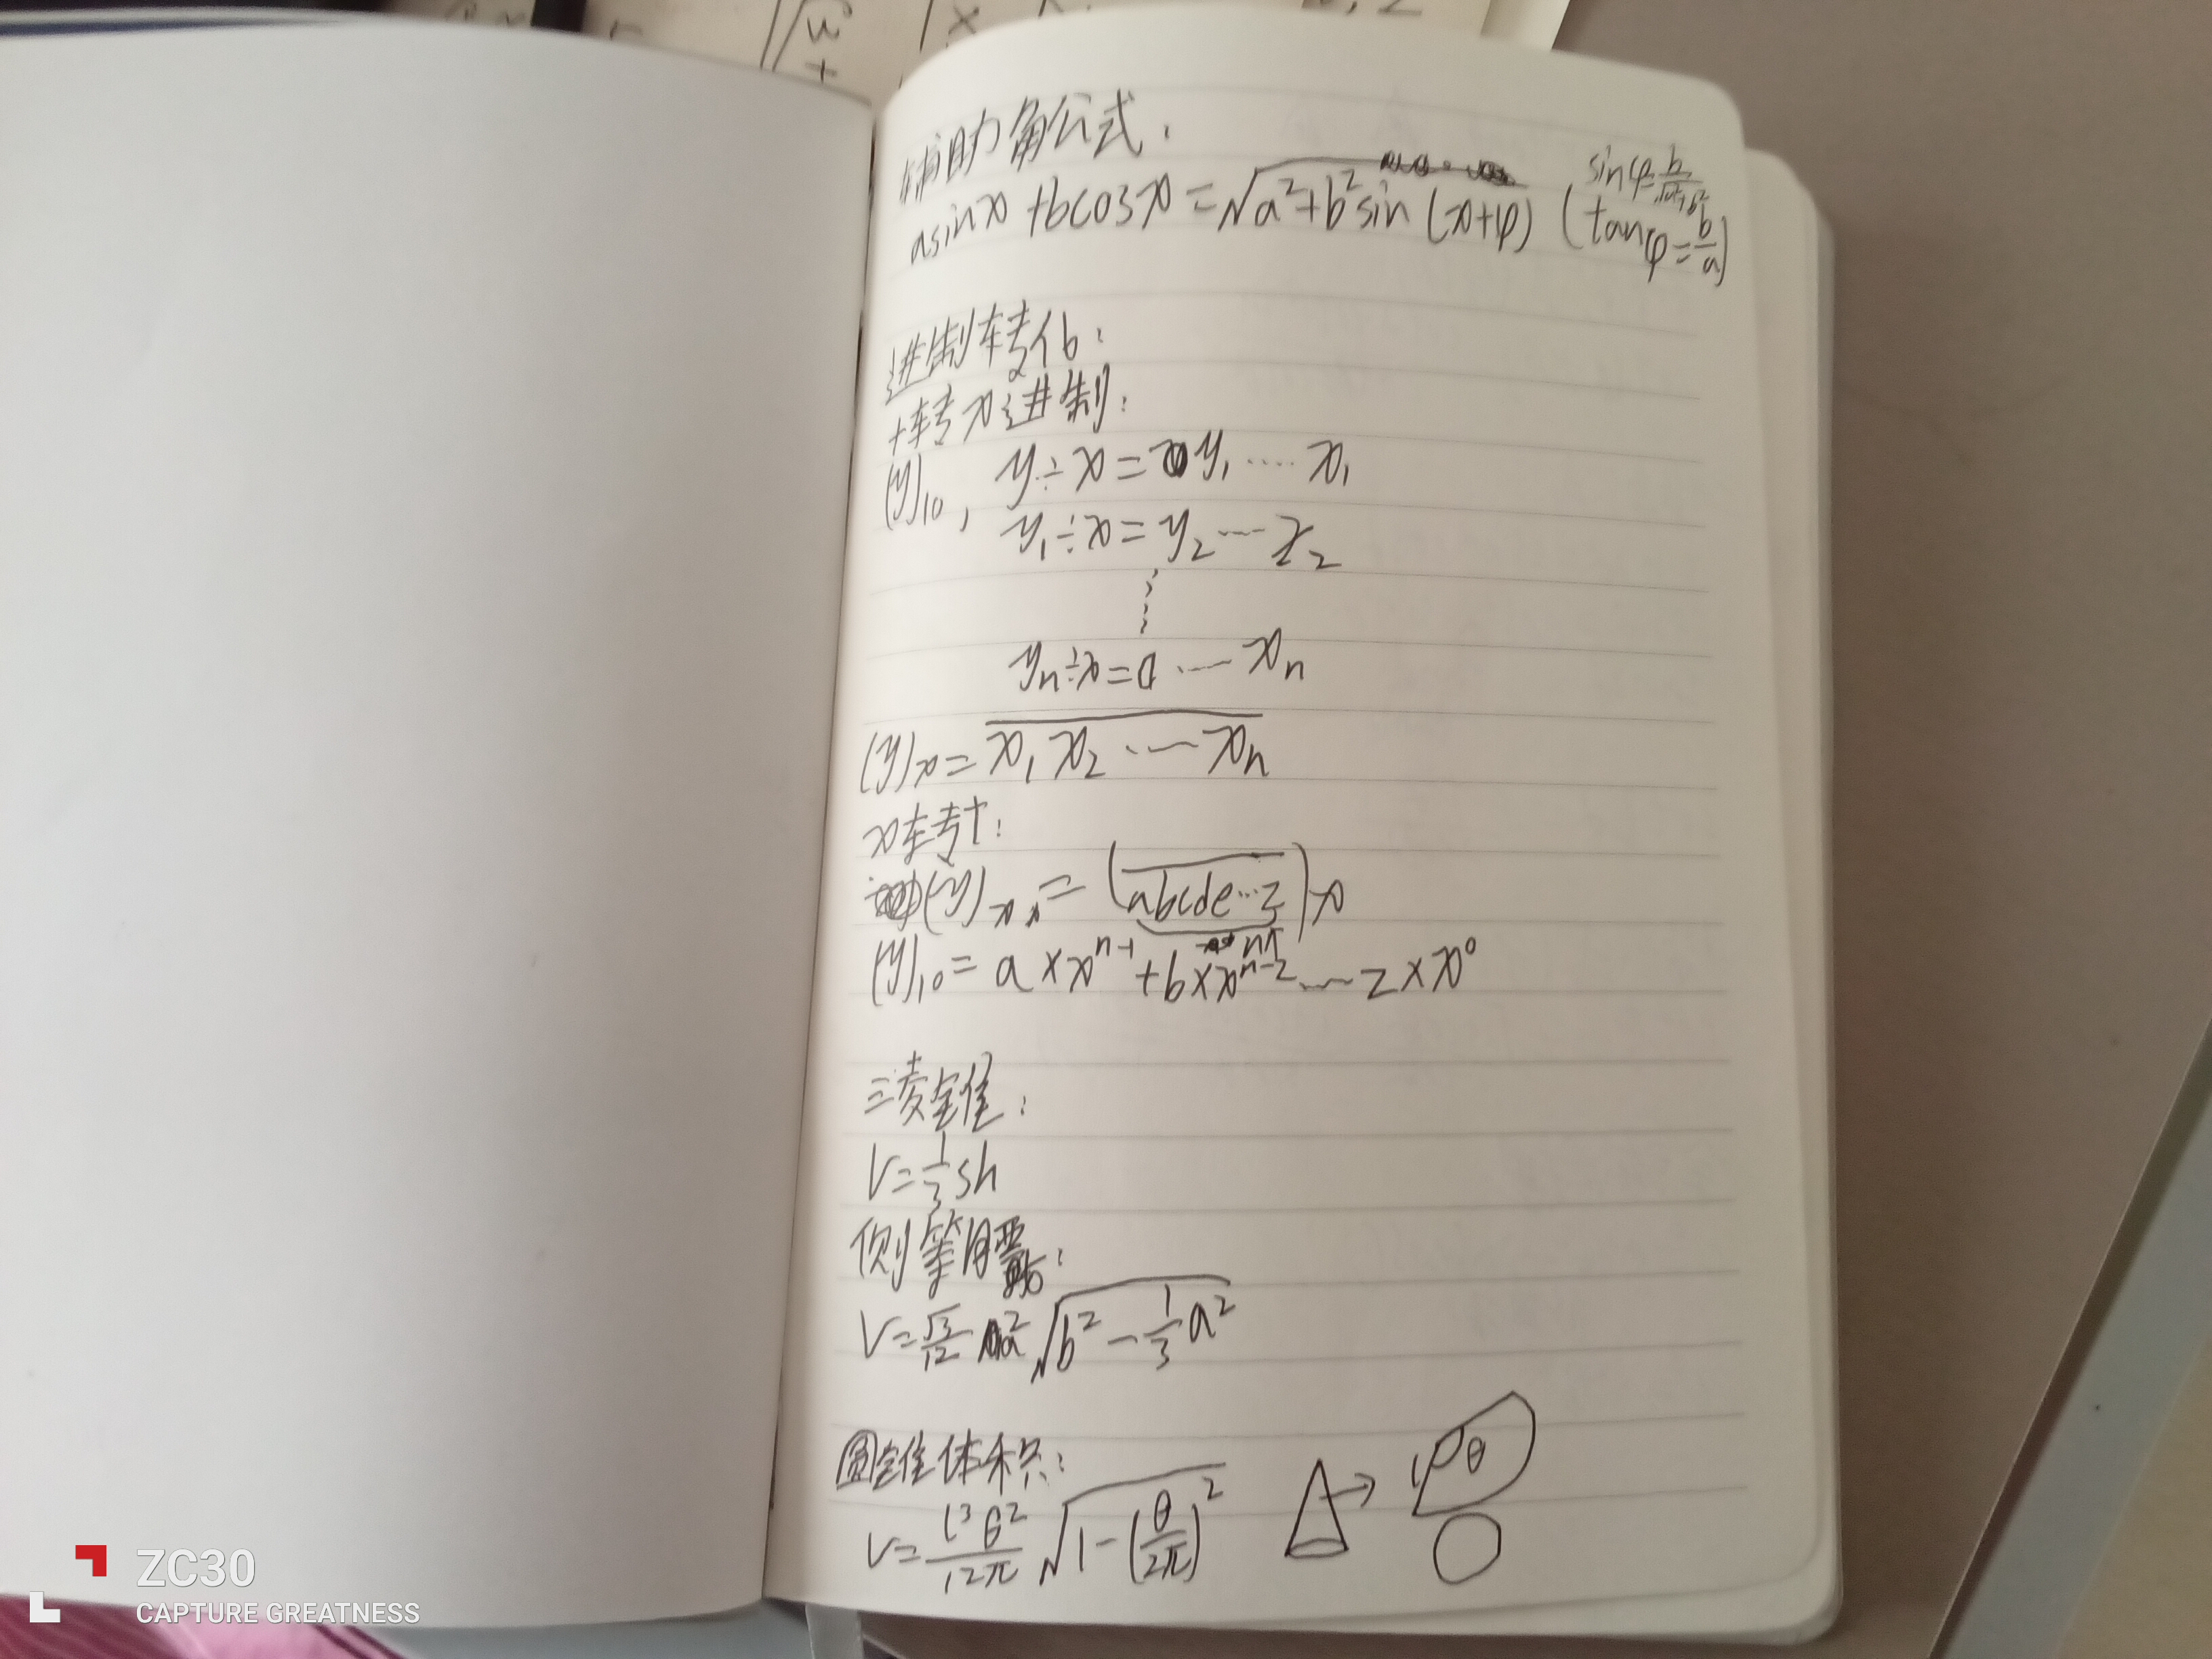 辅助角公式:
asinx+bcosx=√a²+b² sin(x+φ) (tanφ=b/a)
sinφ=b/√a²+b²
进制转化:
十转x进制:
(y)₁₀, y÷x=y₁……x₁
y₁÷x=y₂……x₂
⋮
yₙ÷x=0……xₙ
(y)ₓ=x₁x₂……xₙ
x转十:
(y)ₓ=(abcde…z)x
n个
(y)₁₀=a×xⁿ⁻¹+b×xⁿ⁻²……z×x⁰
三棱锥:
V=1/3sh
侧等腰:
V=√3/12 a²√b²-1/3a²
圆锥体积:
V=l³θ²/12π √1-(θ/2π)²
l θ
ZC30
CAPTURE GREATNESS